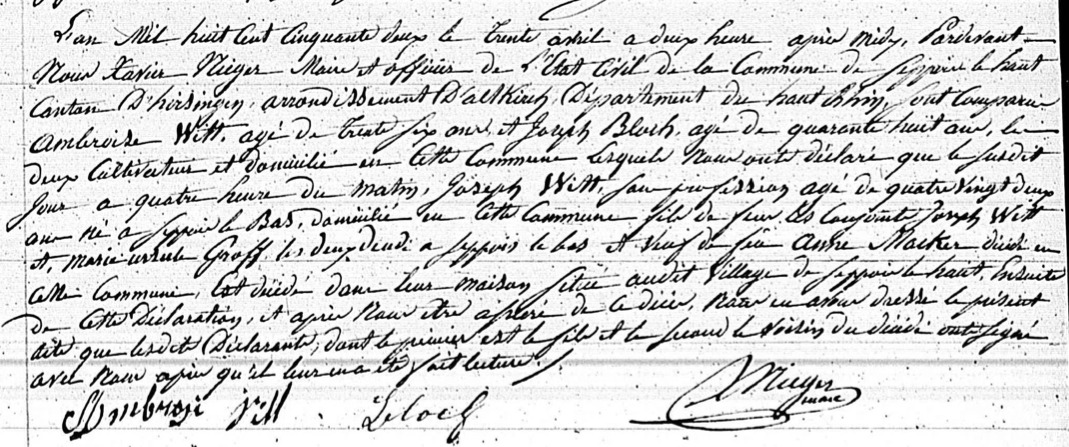 L'an Mil huit Cent Cinquante deux le Trente avril a deux heure après midy, Pardevant
Nous Xavier Nieger Maire et officier de L'Etat Civil de la Commune de Seppois le haut
Canton D'hirsingen, arrondissement D'altkirch, Département du haut Rhin, sont Comparu
Ambroise Witt, agé de Trente six ans, et Joseph Bloch, agé de quarante huit ans, les
deux Cultivateur et domicilié en Cette Commune Lesquels Nous ont déclaré que le susdit
Jour a quatre heure du Matin, Joseph Witt, sans profession agé de quatre Vingt deux
ans né a Seppois le Bas, domicilié en Cette Commune fils de feu les Conjoints Joseph Witt
et, Marie ursule Groff les deux décédé a Seppois le bas et Veuf de feu Anne Macker décédé en
Cette Commune, Est décédé dans leur maison située audit Village de Seppois le haut, Ensuite
de Cette Déclaration, et après Nous être assuré de Ce décès, Nous en avons dressé le présent
acte que lesdits Déclarants, dont le premier est le fils et le second le Voisin du décédé ont signé
avec Nous après qu'il leur en a été fait lecture./
Ambrosi Vitt Bloch Nieger
maire